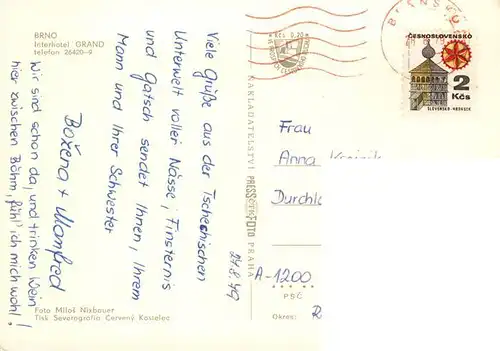 BRNO
Interhotel GRAND
Telefon 26420-9
Viele Grüße aus der Tschechischen
Unterwelt voller Nässe, Finsternis
und Gatsch sendet Ihnen, Ihrem
Mann und Ihrer Schwester
Božena + Manfred
Wir sind schon da, und trinken Wein
hier zwischen Böhm, fühl' ich mich wohl!
24.8.79
Foto Miloš Nixbauer
Tisk Severografia Červený Kostelec
NAKLADATELSTVÍ PRESSFOTO PRAHA
Kčs 0,70
ČESKOSLOVENSKO
2
Kčs
SLOVENSKO-HRONSEK
Frau
Anna
Durchl
A-1200
PSČ
Okres: